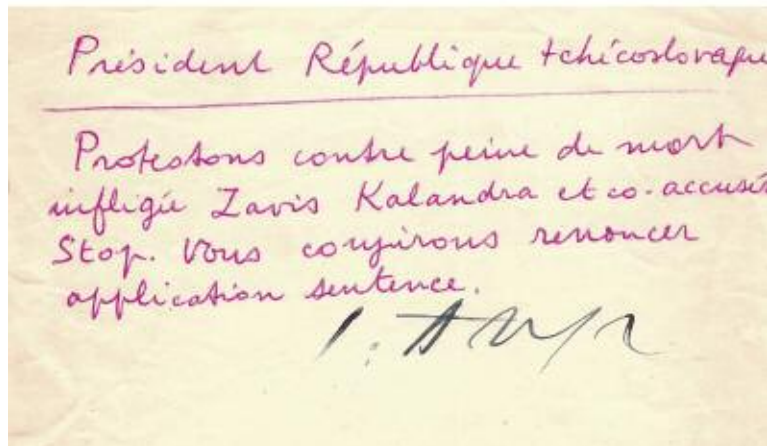 Président République tchécoslovaque
Protestons contre peine de mort
infligée Zavis Kalandra et co-accusés
Stop. Vous conjurons renoncer
application sentence.